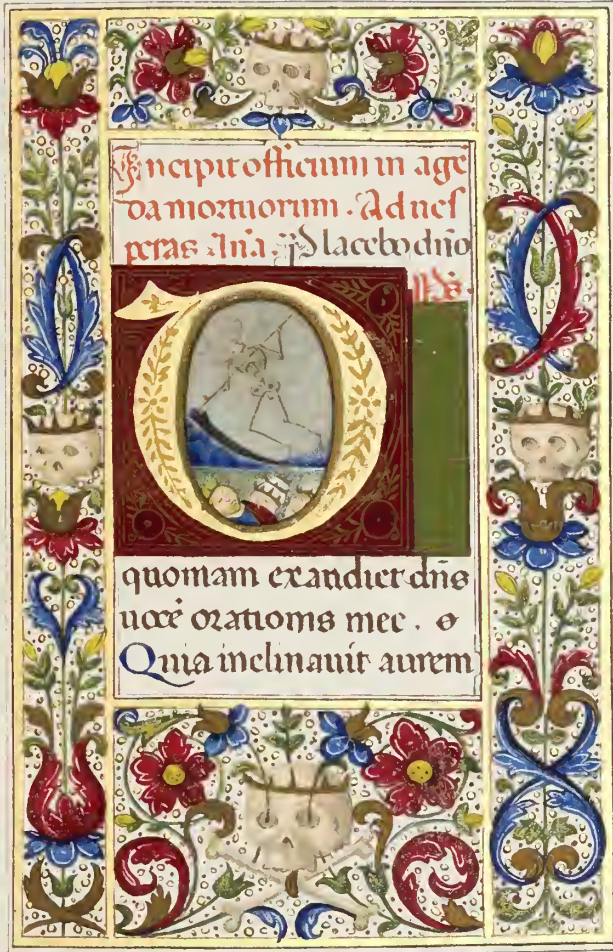 Incipit officium in age
da mortuorum . Ad ues
peras Aña. Placebo dño
ps.
D
quoniam exaudiet dñs
uocē orationis mee .
Quia inclinauit aurem